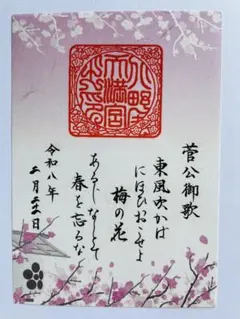 菅公御歌
東風吹かば
にほひおこせよ
梅の花
あるじなしとて
春を忘るな
令和八年
二月
天満宮